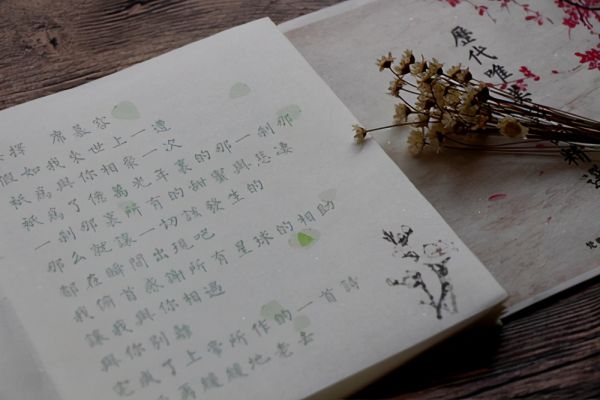 擇 席慕容
假如我来世上一遭
祇為與你相聚一次
祇為了億萬光年裏的那一刹那
一刹那裏所有的甜蜜與悲凄
那么就讓一切該發生的
都在瞬間出現吧
我俯首感謝所有星球的相助
讓我與你相遇
與你別離
完成了上帝所作的一首詩
再緩緩地老去
歷代唯美